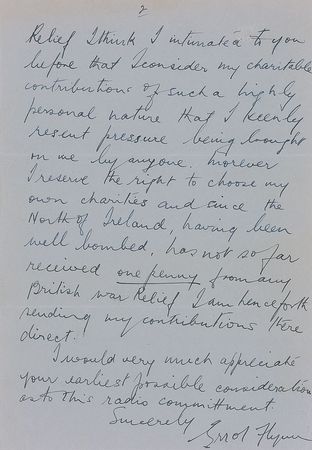 2
Relief I think I intimated to you
before that I consider my charitable
contributions of such a highly
personal nature that I keenly
resent pressure being brought
on me by anyone. Morever
I reserve the right to choose my
own charities and since the
North of Ireland, having been
well bombed, has not so far
received one penny from any
British War Relief I am henceforth
sending my contributions there
direct.
I would very much appreciate
your earliest possible consideration
as to this radio committment.
Sincerely
Errol Flynn